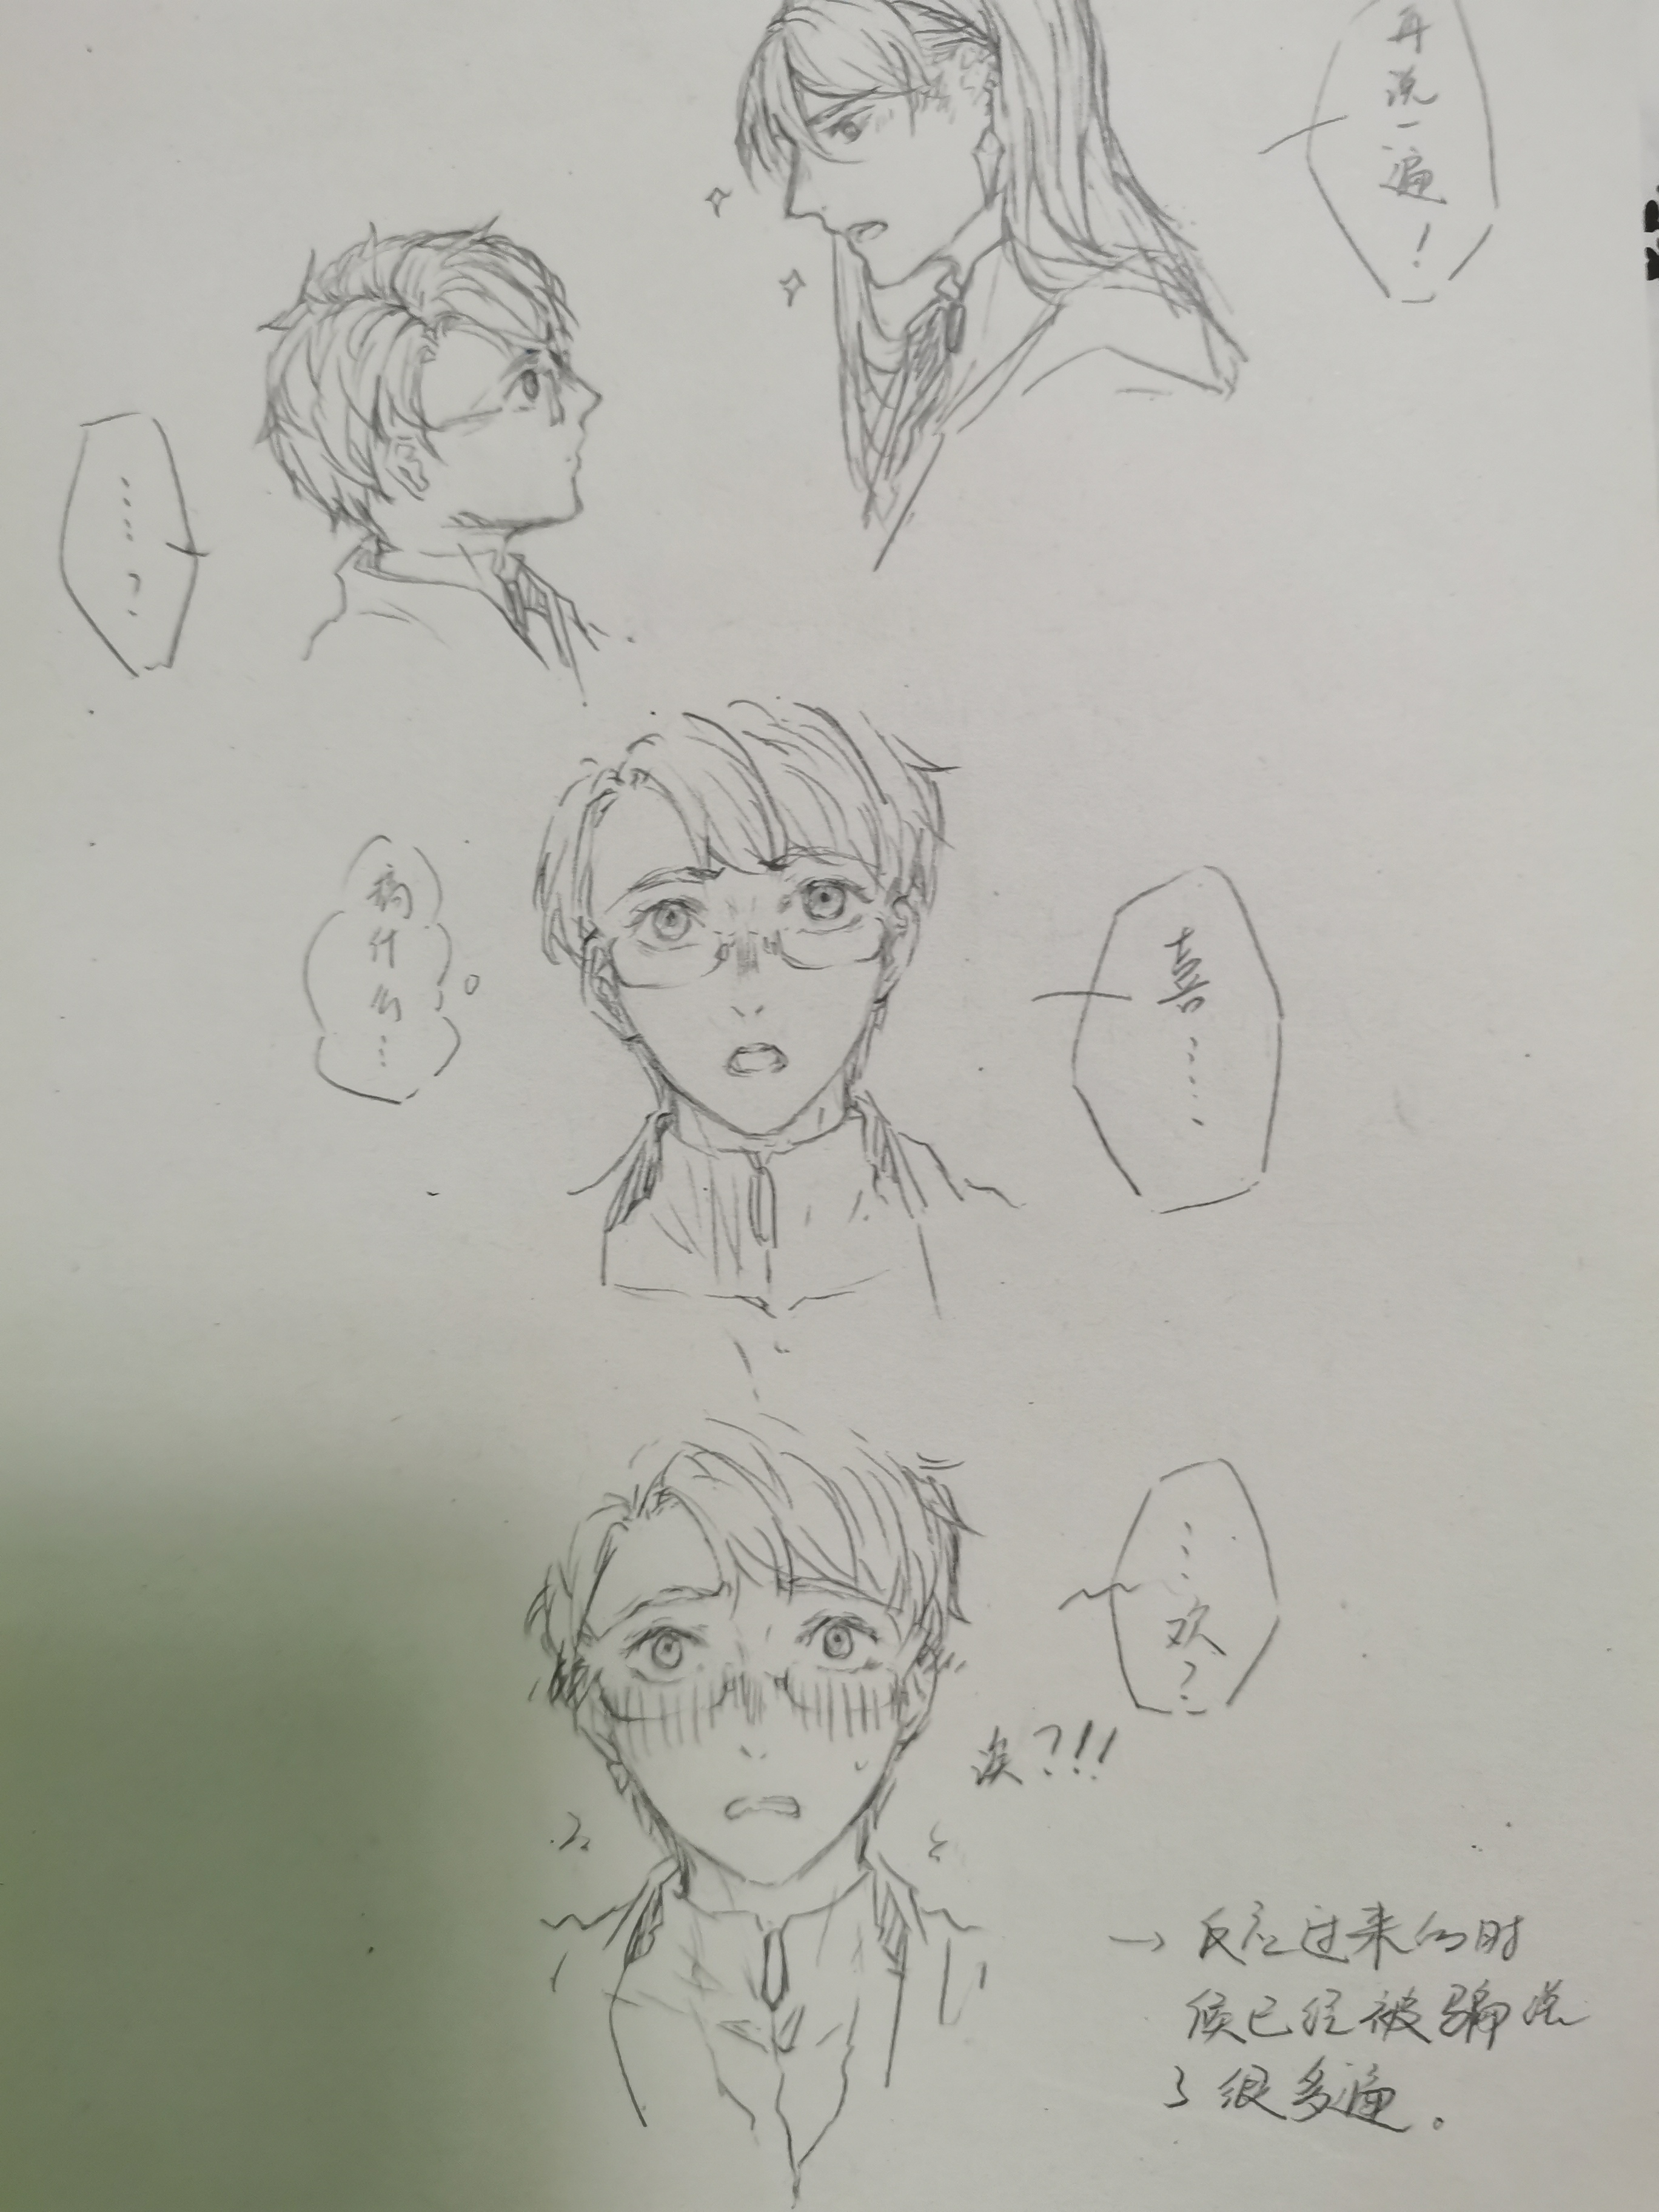 再说一遍！
……？
搞什么…
喜……
…欢？
诶？!!!
→反应过来的时
候已经被骗说
了很多遍。